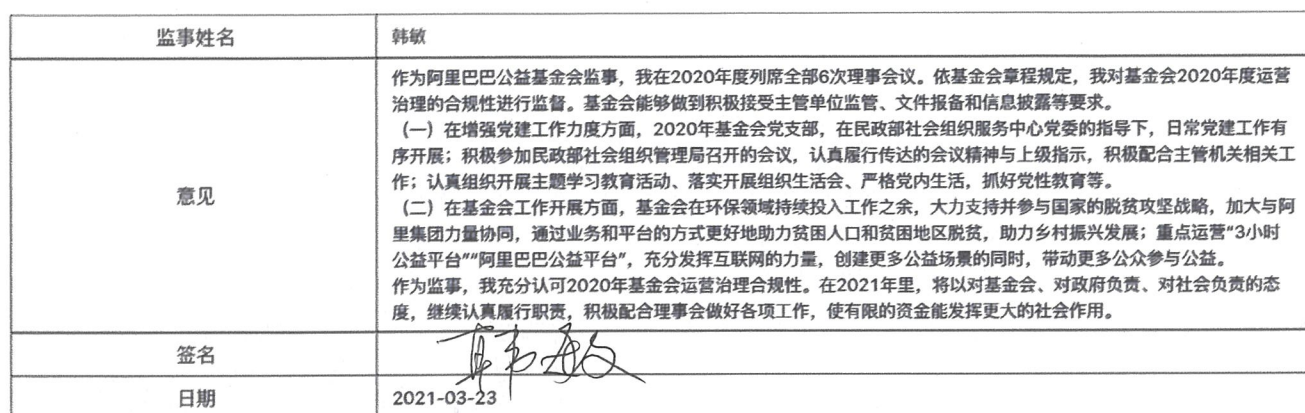 监事姓名
韩敏
意见
作为阿里巴巴公益基金会监事，我在2020年度列席全部6次理事会议。依基金会章程规定，我对基金会2020年度运营
治理的合规性进行监督。基金会能够做到积极接受主管单位监管、文件报备和信息披露等要求。
（一）在增强党建工作力度方面，2020年基金会党支部，在民政部社会组织服务中心党委的指导下，日常党建工作有
序开展；积极参加民政部社会组织管理局召开的会议，认真履行传达的会议精神与上级指示，积极配合主管机关相关工
作；认真组织开展主题学习教育活动、落实开展组织生活会、严格党内生活，抓好党性教育等。
（二）在基金会工作开展方面，基金会在环保领域持续投入工作之余，大力支持并参与国家的脱贫攻坚战略，加大与阿
里集团力量协同，通过业务和平台的方式更好地助力贫困人口和贫困地区脱贫，助力乡村振兴发展；重点运营“3小时
公益平台”“阿里巴巴公益平台”，充分发挥互联网的力量，创建更多公益场景的同时，带动更多公众参与公益。
作为监事，我充分认可2020年基金会运营治理合规性。在2021年里，将以对基金会、对政府负责、对社会负责的态
度，继续认真履行职责，积极配合理事会做好各项工作，使有限的资金能发挥更大的社会作用。
签名
韩敏
日期
2021-03-23